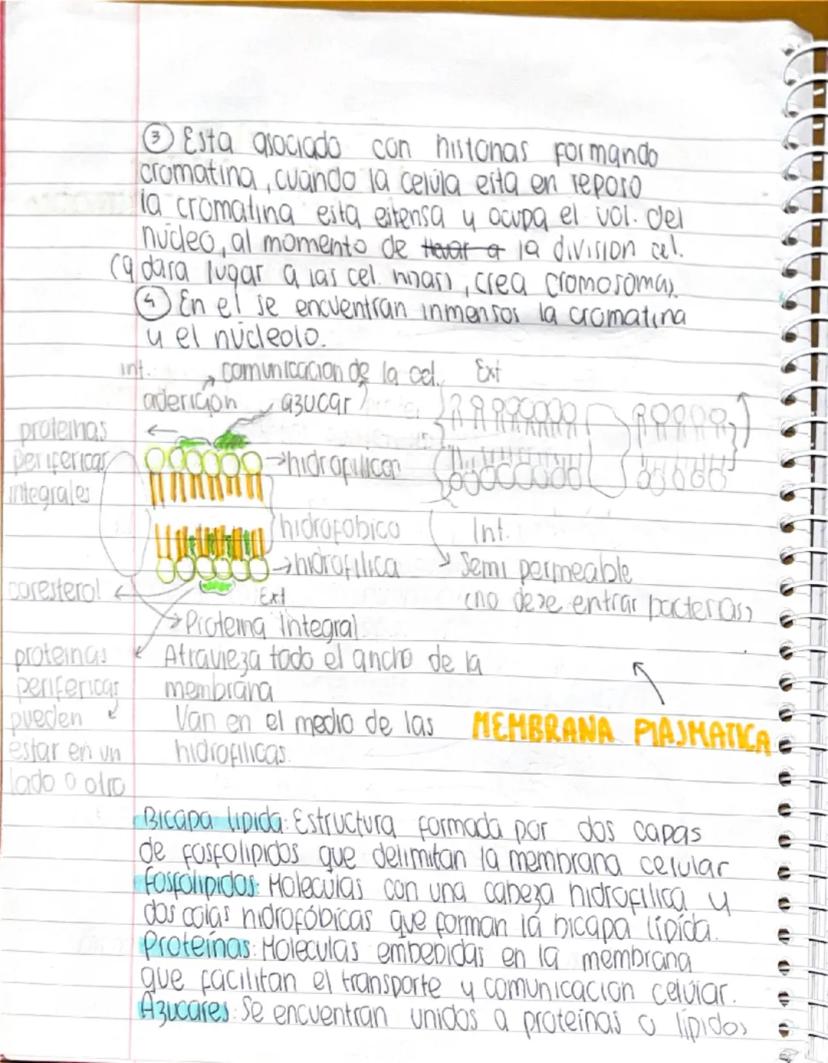 ③ Esta asociado con histonas formando
cromatina, cuando la celula esta en reposo
la cromatina esta extensa y ocupa el vol. del
nucleo, al momento de la division cel.
(q dara lugar a las cel. hijas), crea cromosomas.
④ En el se encuentran inmersos la cromatina
y el nucleolo.
int. comunicacion de la cel. Ext
adericion azucar
proteinas
perifericas → hidrofilicas
integrales
hidrofobico Int.
→ hidrofilica Semi permeable
coresterol Ext (no deje entrar bacterias)
→ Proteina integral
proteinas Atravieza todo el ancho de la
perifericas membrana
pueden Van en el medio de las MEMBRANA PLASMATICA
estar en un hidrofilicas
lado o otro
Bicapa lipida: Estructura formada por dos capas
de fosfolipidos que delimitan la membrana celular
Fosfolipidos: Moleculas con una cabeza hidrofilica y
dos colas hidrofóbicas que forman la bicapa lipida.
Proteínas: Moleculas embebidas en la membrana
que facilitan el transporte y comunicacion celular.
Azucares: Se encuentran unidos a proteínas o lípidos